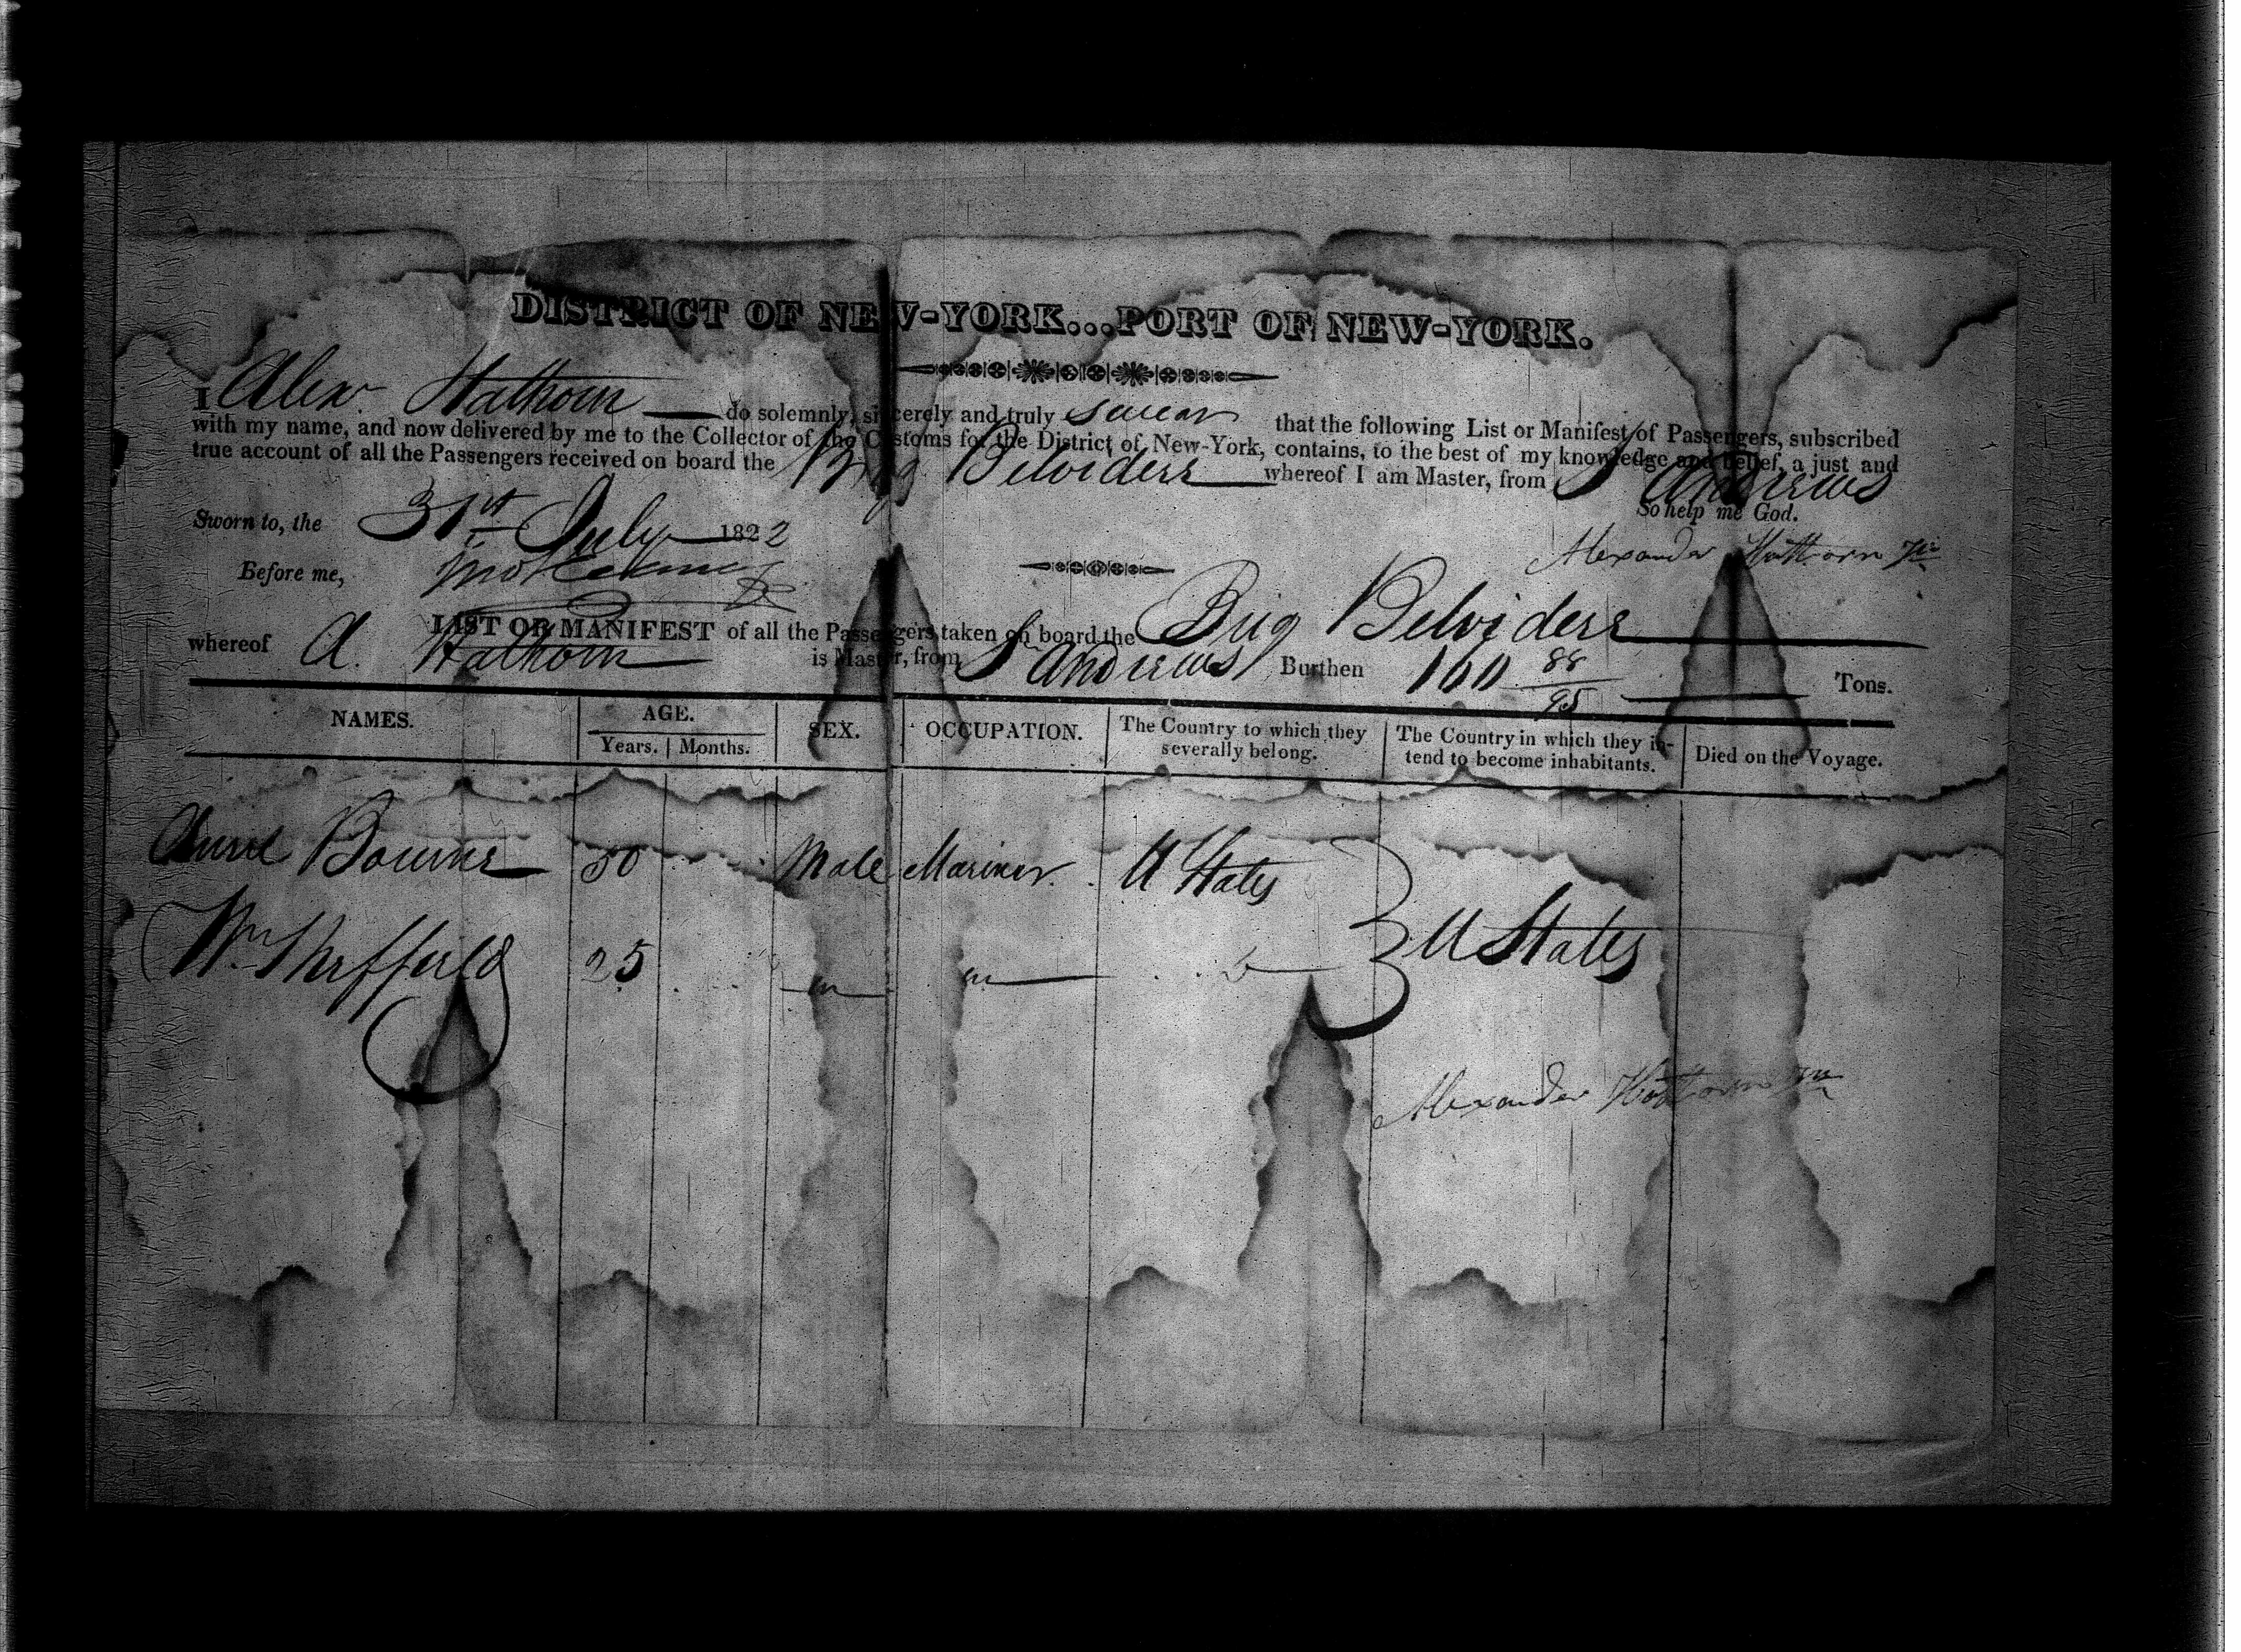 DISTRICT OF NEW-YORK...PORT OF NEW-YORK.
I Alexr. Hathorn do solemnly, sincerely and truly swear that the following List or Manifest of Passengers, subscribed
with my name, and now delivered by me to the Collector of the Customs for the District of New-York, contains, to the best of my knowledge and belief, a just and
true account of all the Passengers received on board the Brig Belvidere whereof I am Master, from St Andrews
So help me God.
Sworn to, the 31st July 1822
Alexander Hathorn Jr
Before me,
LIST OR MANIFEST of all the Passengers taken on board the Brig Belvidere
whereof A. Hathorn is Master, from St Andrews Burthen 160 88/95 Tons.
NAMES. AGE. SEX. OCCUPATION. The Country to which they severally belong. The Country in which they intend to become inhabitants. Died on the Voyage.
Years. | Months.
Bourne 50 Male Mariner U States
Wm Sheffield 25 U States
Alexander Hathorn Jr